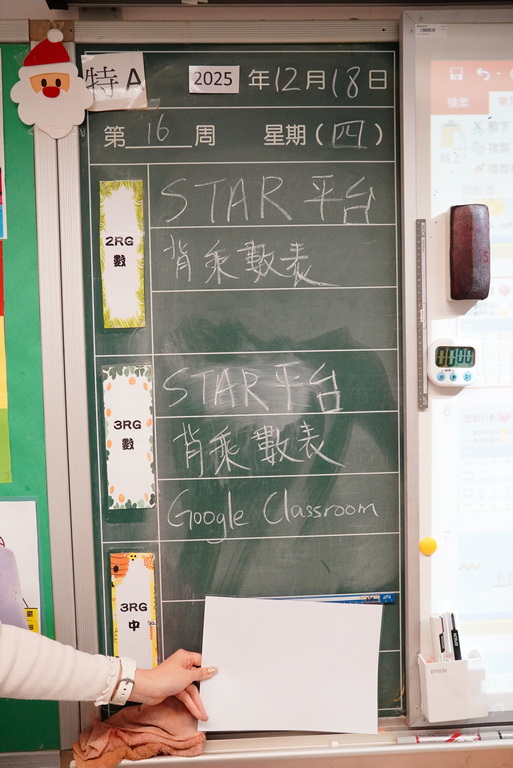 特A
2025 年12月18日
第 16 周 星期(四)
2RG
數
STAR 平台
背乘數表
3RG
數
STAR 平台
背乘數表
Google Classroom
3RG
中
檔案
EPSON